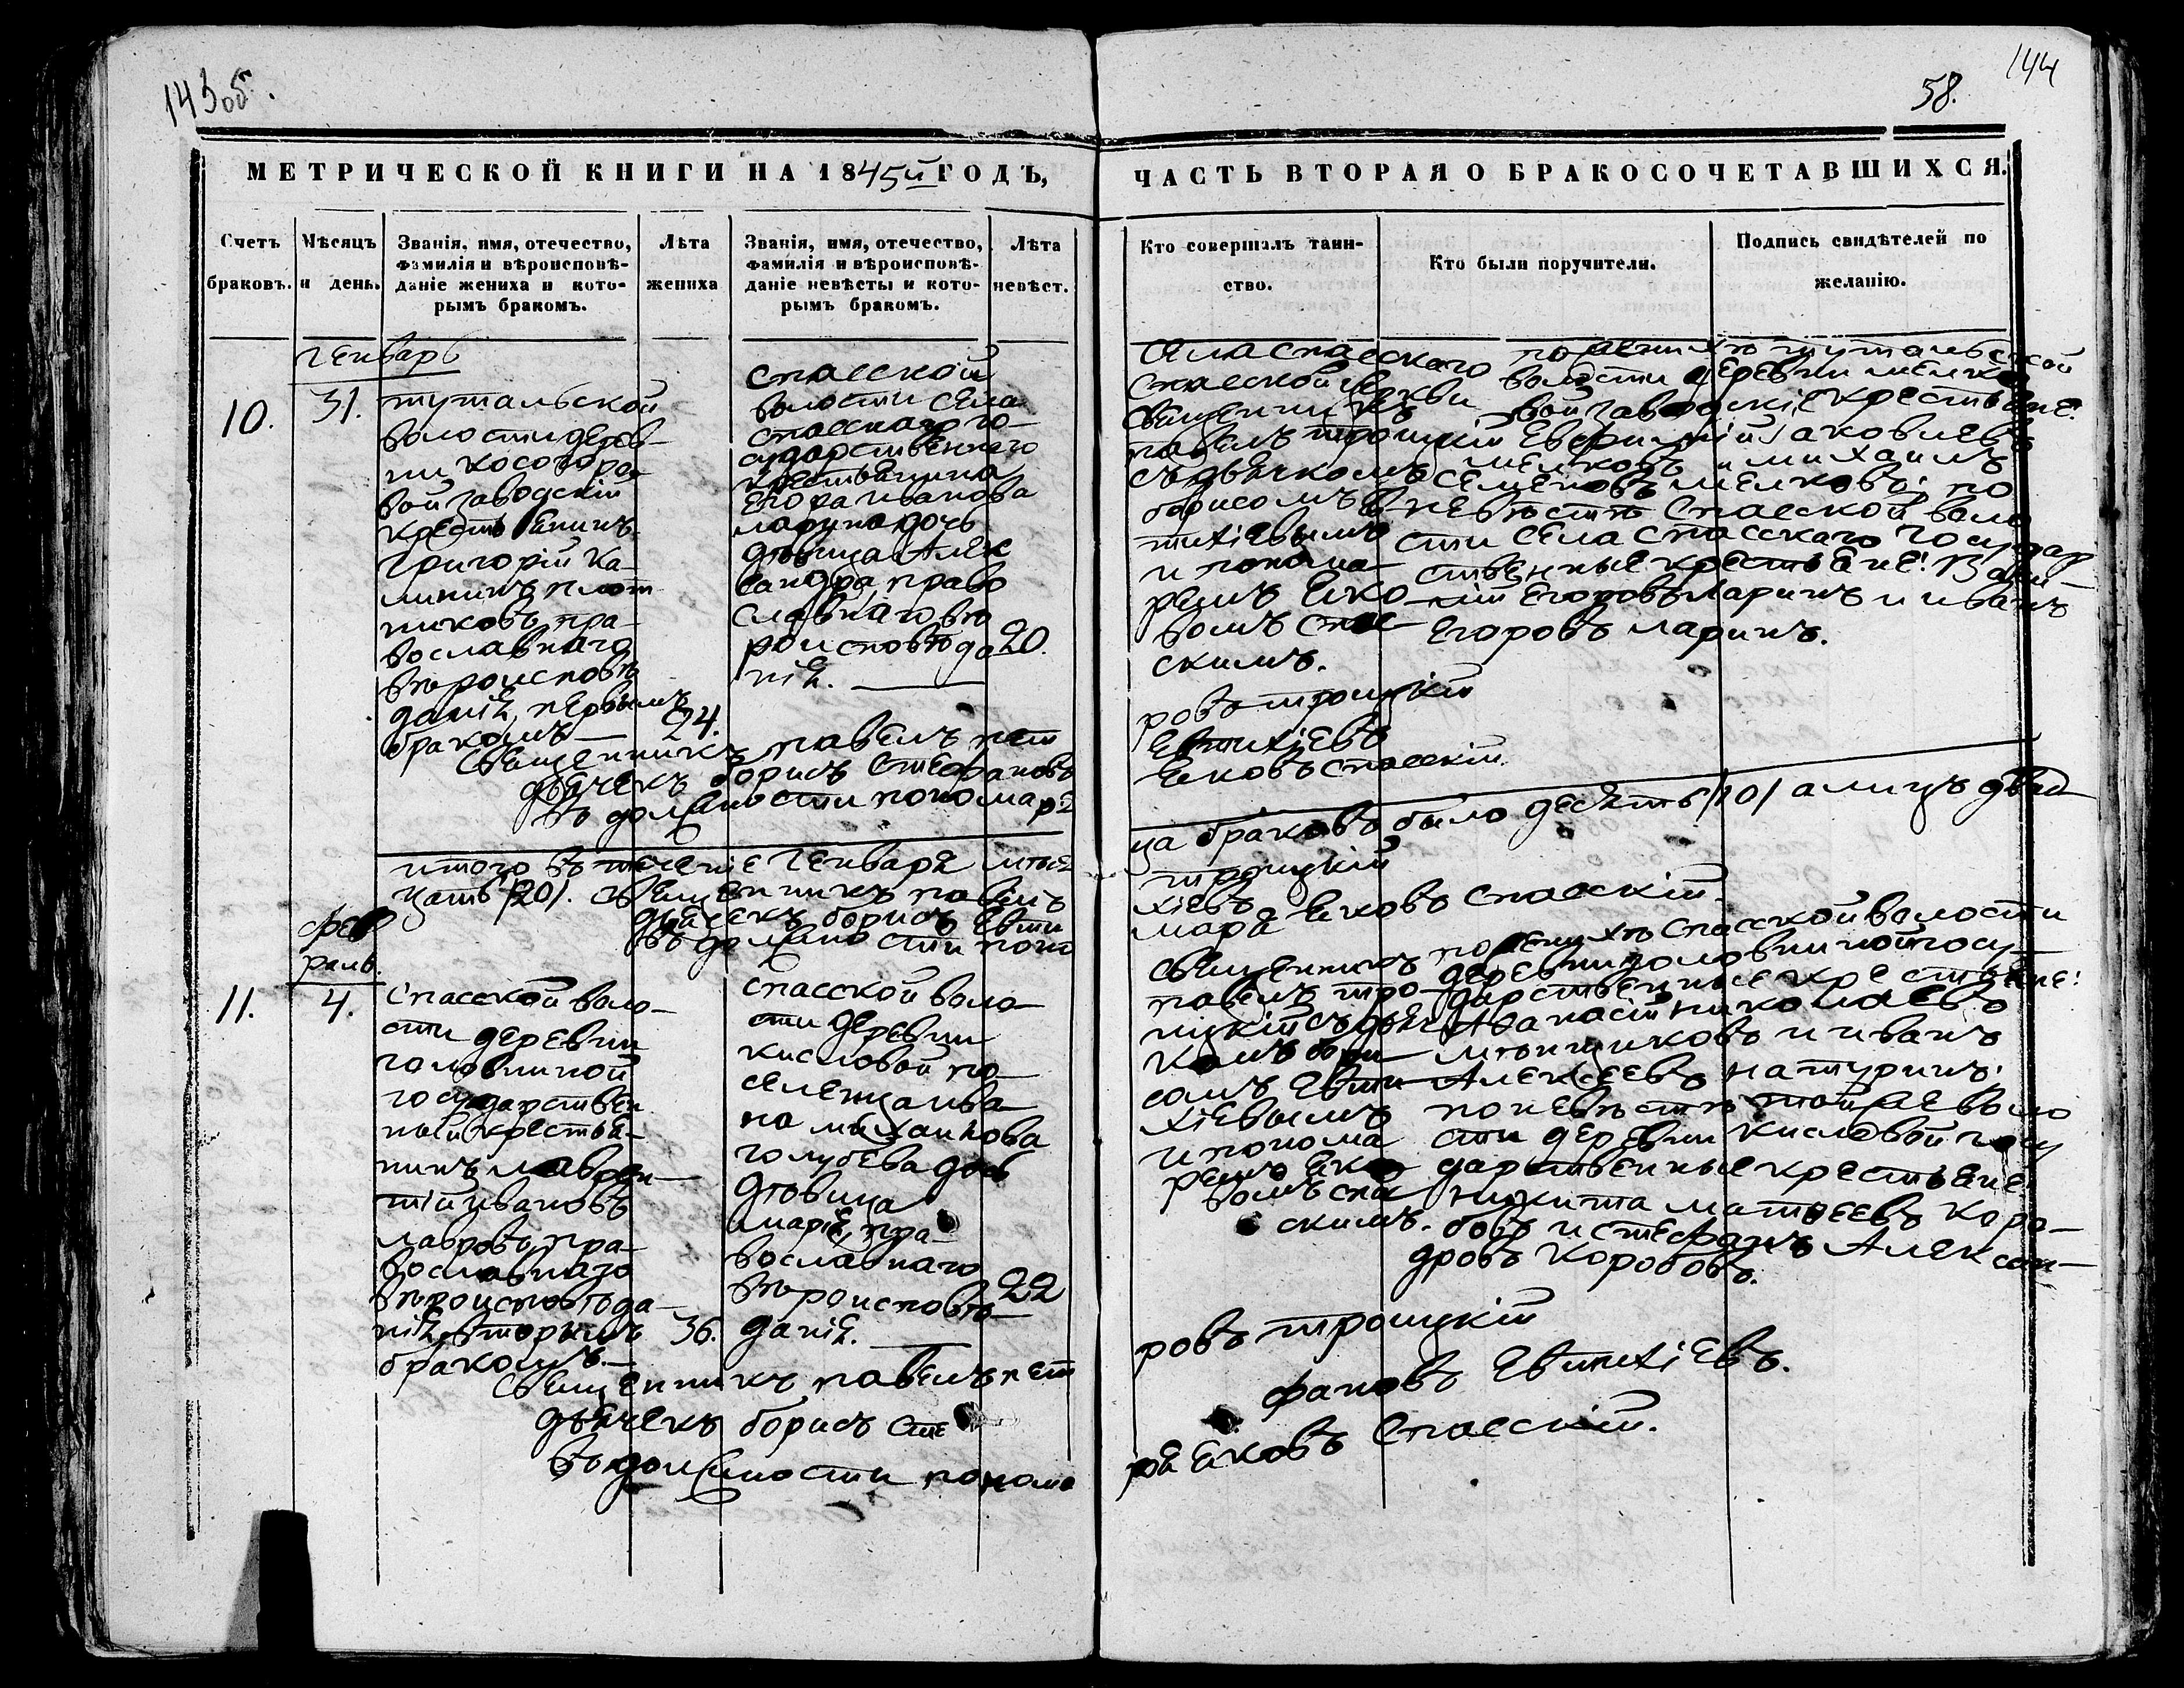 143об.
58.
144
МЕТРИЧЕСКОЙ КНИГИ НА 1845й ГОДЪ,
ЧАСТЬ ВТОРАЯ О БРАКОСОЧЕТАВШИХСЯ.
Счетъ
браковъ.
Мѣсяцъ
и день.
Званія, имя, отечество,
фамилія и вѣроисповѣ-
даніе жениха и кото-
рымъ бракомъ.
Лѣта
жениха
Званія, имя, отечество,
фамилія и вѣроисповѣ-
даніе невѣсты и кото-
рымъ бракомъ.
Лѣта
невѣст.
Кто совершалъ таин-
ство.
Кто были поручители.
Подпись свидѣтелей по
желанію.
Генварь
10.
31.
тутальской
волости дерев-
ни косогоро-
вой заводскій
крестьенинъ
григорій ка-
лининъ плот
никовъ, пра-
вославнаго
вѣроисповѣ
даніе, первымъ
бракомъ —
24.
спасской
волости села
спасскаго го-
сударственнаго
крестьенина
Егора иванова
ларина дочь
дѣвица Алек
сандра, право
славнаго вѣ
роисповѣда
ніе. —
20.
села спасского
спасской церкви
священникъ
павелъ троицкій
съ дьячкомъ
борисомъ Ев
тихіевымъ
и понома-
ремъ Еко
вомъ спас-
скимъ.
по женихѣ тутальской
волости деревни мелко
вой заводскіе крестьене:
Евфимій яковлевъ
мелковъ и михаилъ
семеновъ мелковъ; по
невѣстѣ спасской воло
сти села спасскаго государ
ственные крестьене: Васи-
лій Егоровъ ларинъ и иванъ
Егоровъ ларинъ.
священникъ павелъ пет
ровъ троицкій
дьячекъ борисъ стефановъ
Евтихіевъ
въ должности пономаре
Ековъ спасскій.
итого въ теченіе Генваре мѣсе
ца браковъ было десеть /10/ а лицъ двад
цать /20/. священникъ павелъ
троицкій
дьячекъ борисъ Евти
хіевъ
въ должности поно
маре Ековъ спасскій.
фев
раль.
11.
4.
спасской воло-
сти деревни
головниной
государствен
ный крестье-
нинъ лаврен-
тій ивановъ
лавровъ, пра-
вославнаго
вѣроисповѣда-
ніе, вторымъ
бракомъ.—
36.
спасской воло-
сти деревни
кисловой по-
селенца ива
на михайлова
голубева дочь
дѣвица
маріе, пра-
вославнаго
вѣроисповѣ-
даніе.
22
священникъ
павелъ тро-
ицкій съ дьяч
комъ бори-
сомъ Евти-
хіевымъ
и понома
ремъ Еко
вомъ спа
скимъ.
по женихѣ спасской волости
деревни головниной госу-
дарственные крестьене:
Афанасій николаевъ
мѣнщиковъ и иванъ
Алексеевъ натуринъ;
по невѣстѣ той же воло
сти деревни кисловой госу
дарственные крестьене
никита матвеевъ коро-
бовъ и стефанъ Алексан-
дровъ коробовъ.
священникъ павелъ пет
ровъ троицкій
дьячекъ борисъ сте
фановъ Евтихіевъ.
въ должности понома
ре Ековъ спасскій.